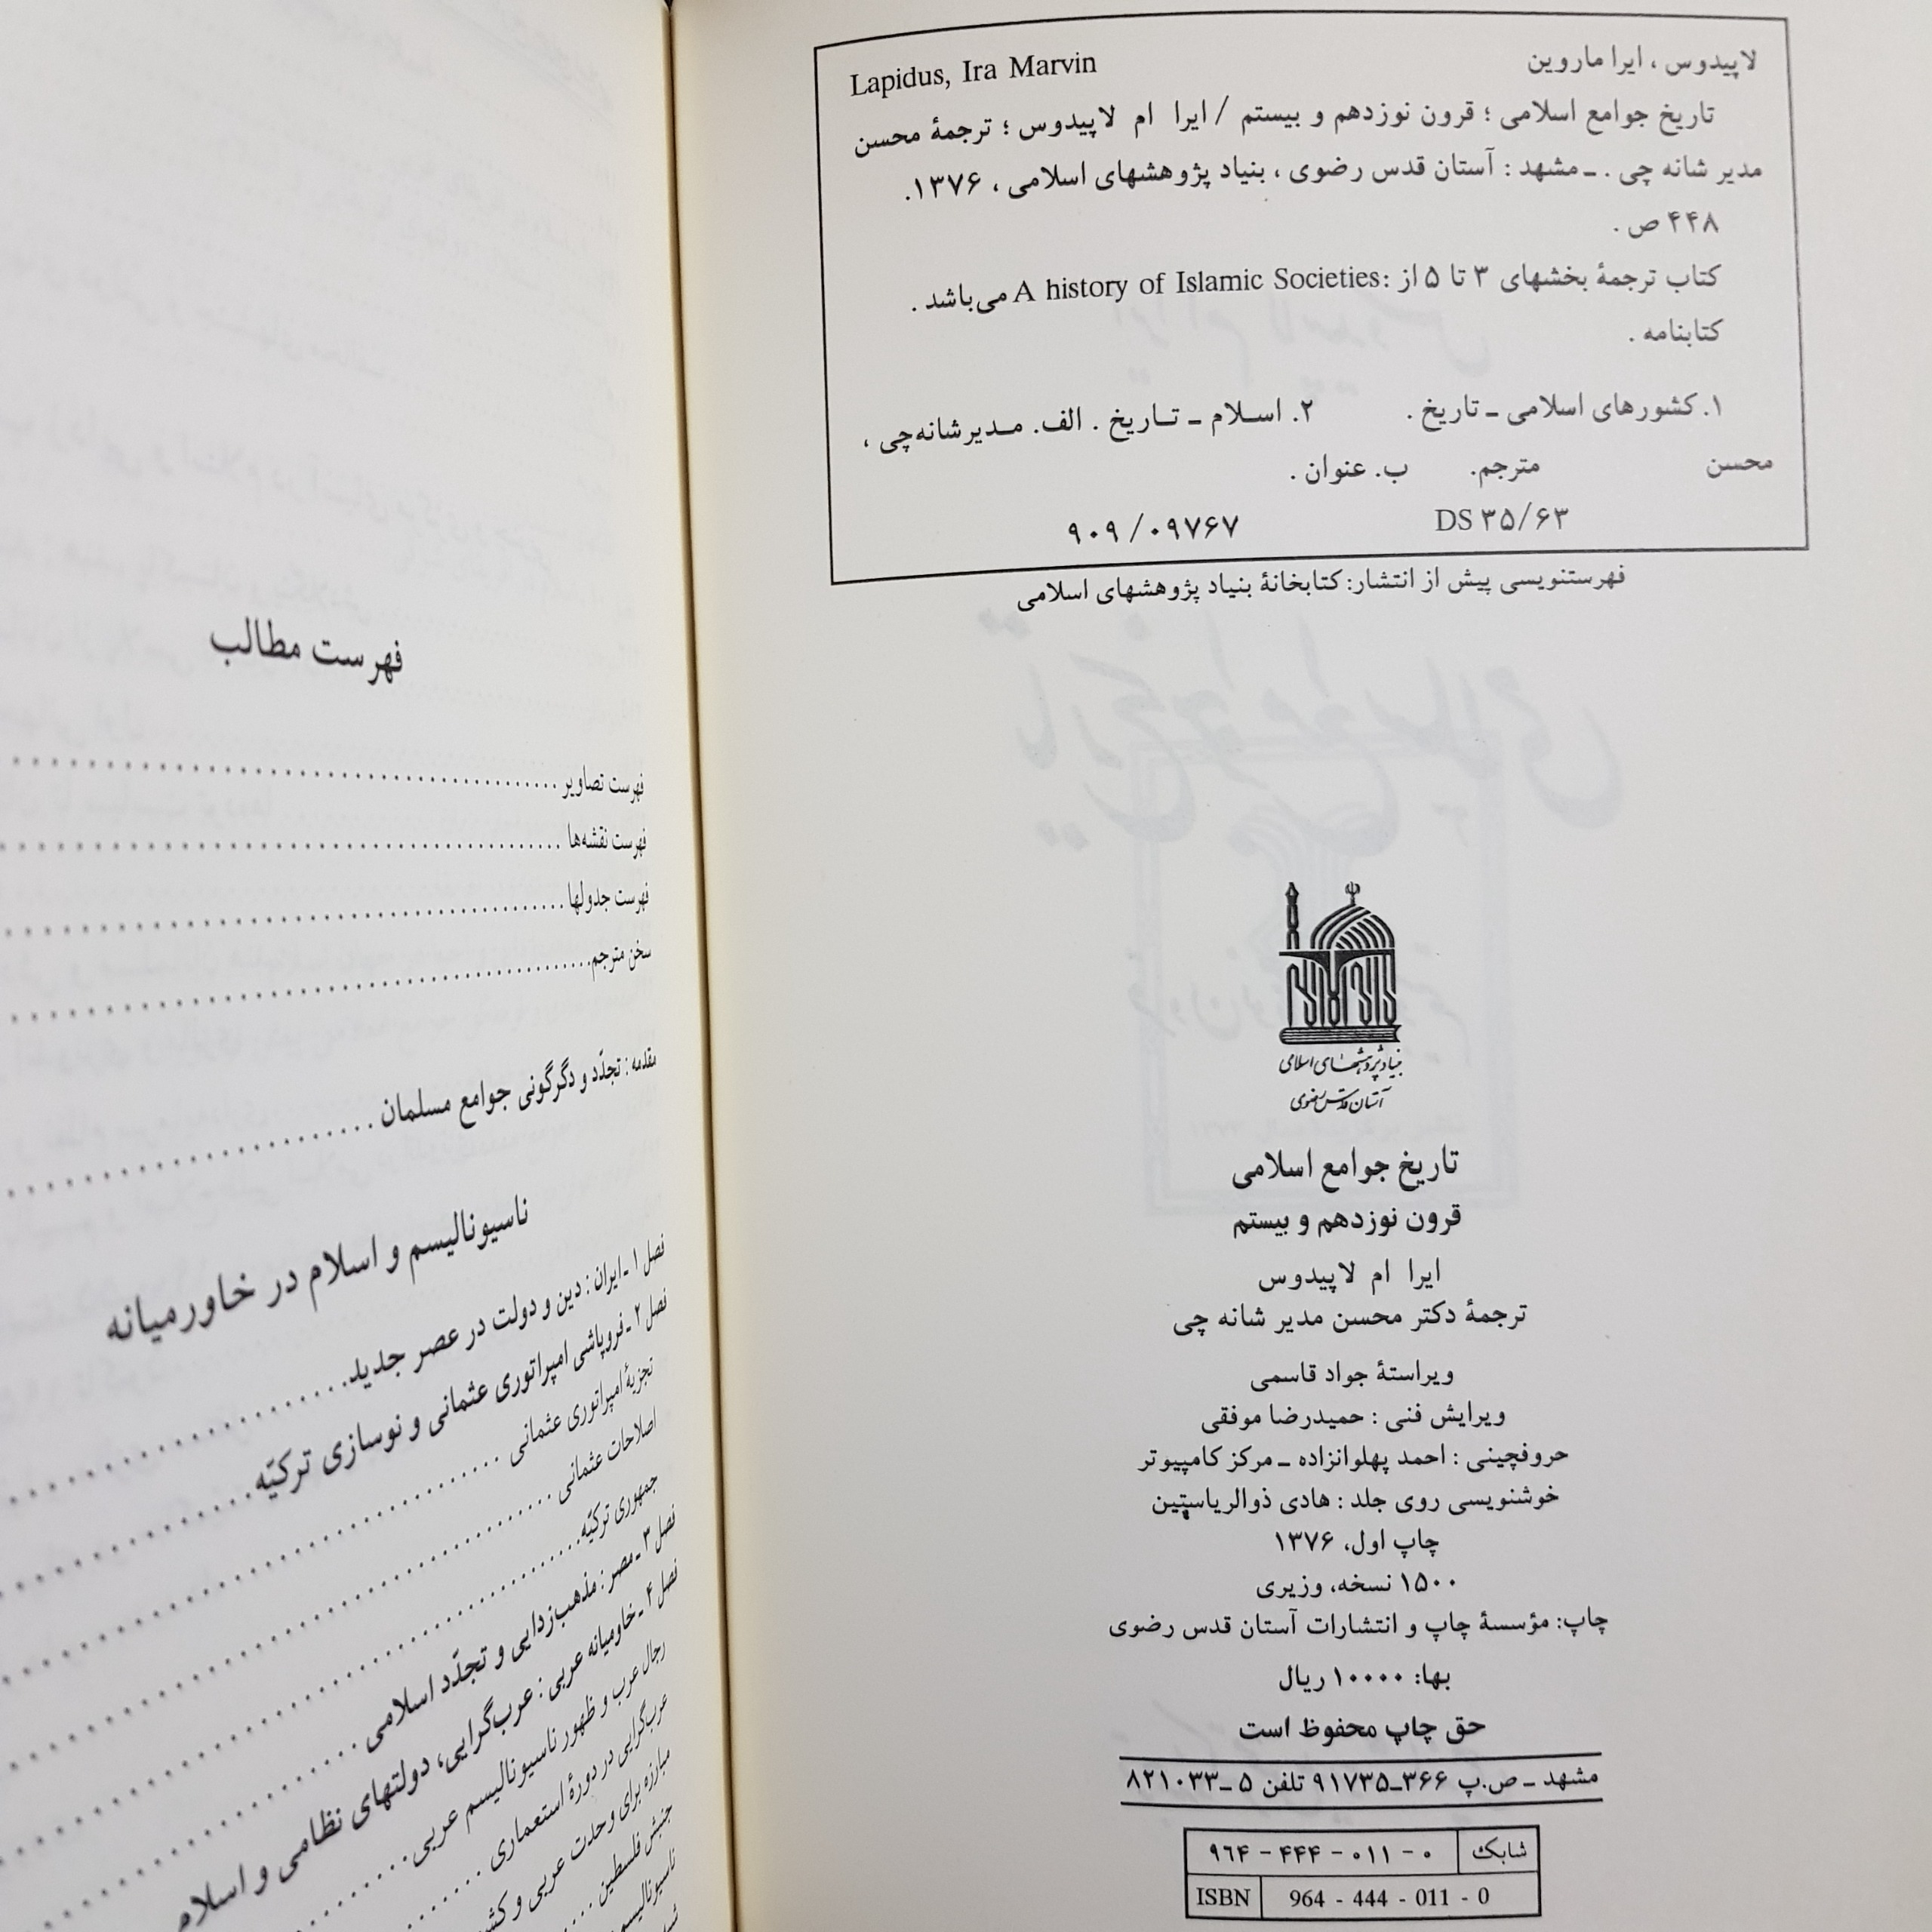 لاپیدوس ، ایرا ماروین Lapidus, Ira Marvin
تاریخ جوامع اسلامی ؛ قرون نوزدهم و بیستم / ایرا ام لاپیدوس ؛ ترجمهٔ محسن
مدیر شانه چی . ـ مشهد : آستان قدس رضوی ، بنیاد پژوهشهای اسلامی ، ۱۳۷۶.
۴۴۸ ص .
کتاب ترجمهٔ بخشهای ۳ تا ۵ از :A history of Islamic Societies می‌باشد .
کتابنامه .
۱. کشورهای اسلامی ـ تاریخ . ۲. اسلام ـ تاریخ . الف. مدیرشانه‌چی ،
محسن مترجم. ب. عنوان .
DS ۳۵/۶۳ ۹۰۹ /۰۹۷۶۷
فهرستنویسی پیش از انتشار: کتابخانهٔ بنیاد پژوهشهای اسلامی
بنیاد پژوهشهای اسلامی
آستان قدس رضوی
تاریخ جوامع اسلامی
قرون نوزدهم و بیستم
ایرا ام لاپیدوس
ترجمهٔ دکتر محسن مدیر شانه چی
ویراستهٔ جواد قاسمی
ویرایش فنی : حمیدرضا موفقی
حروفچینی : احمد پهلوانزاده ـ مرکز کامپیوتر
خوشنویسی روی جلد : هادی ذوالریاستین
چاپ اول، ۱۳۷۶
۱۵۰۰ نسخه، وزیری
چاپ: مؤسسهٔ چاپ و انتشارات آستان قدس رضوی
بها: ۱۰۰۰۰ ریال
حق چاپ محفوظ است
مشهد ـ ص.پ ۳۶۶ـ۹۱۷۳۵ تلفن ۵ ـ۸۲۱۰۳۳
شابک ۰ - ۰۱۱ - ۴۴۴ - ۹۶۴
ISBN 964 - 444 - 011 - 0
فهرست مطالب
فهرست تصاویر
فهرست نقشه‌ها
فهرست جدولها
سخن مترجم
مقدمه : تجدّد و دگرگونی جوامع مسلمان
ناسیونالیسم و اسلام در خاورمیانه
فصل ۱ ـ ایران : دین و دولت در عصر جدید
فصل ۲ ـ فروپاشی امپراتوری عثمانی و نوسازی ترکیّه
تجزیهٔ امپراتوری عثمانی
اصلاحات عثمانی
جمهوری ترکیّه
فصل ۳ ـ مصر : مذهب‌زدایی و تجدّد اسلامی
فصل ۴ ـ خاورمیانه عربی : عرب‌گرایی، دولتهای نظامی و اسلام
رجال عرب و ظهور ناسیونالیسم عربی
عرب‌گرایی در دورهٔ استعماری
مبارزه برای وحدت عربی و
جنبش فلسطین